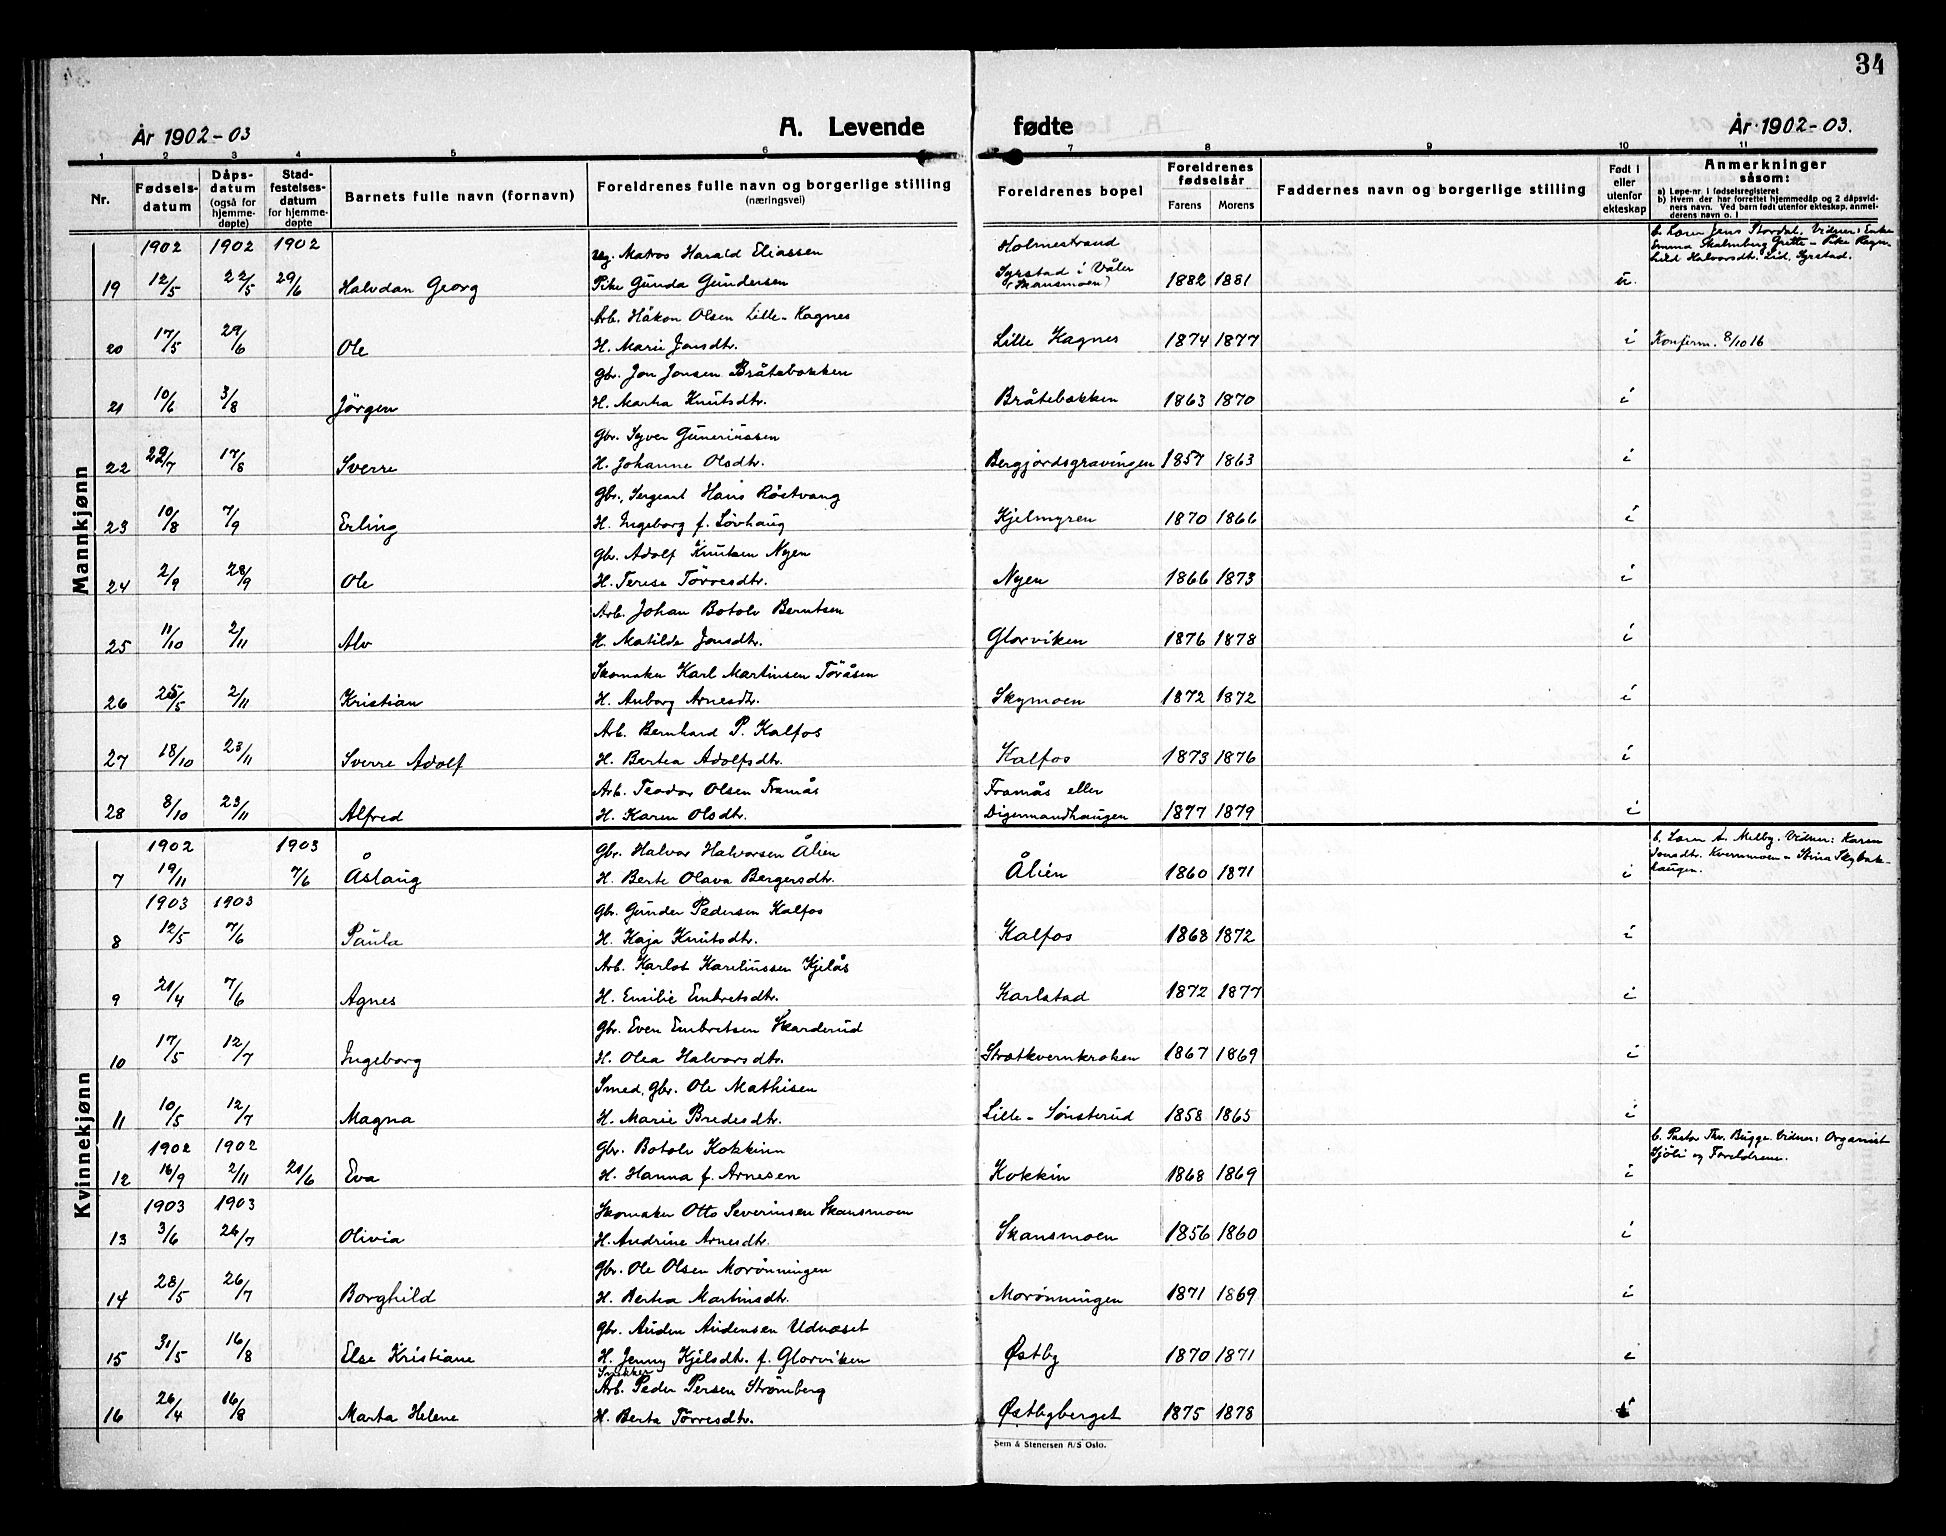 34
År 1902-03
A. Levende fødte
År 1902-03.
1 2 3 4 5 6 7 8 9 10 11
Nr.
Fødsels-datum
Dåps-datum (også for hjemme-døpte)
Stad-festelses-datum for hjemme-døpte
Barnets fulle navn (fornavn)
Foreldrenes fulle navn og borgerlige stilling (næringsvei)
Foreldrenes bopel
Foreldrenes fødselsår
Farens Morens
Faddernes navn og borgerlige stilling
Født i eller utenfor ekteskap
Anmerkninger såsom:
a) Løpe-nr. i fødselsregisteret
b) Hvem der har forrettet hjemmedåp og 2 dåpsvidners navn. Ved barn født utenfor ekteskap, anmelderens navn o. l
Mannkjønn
1902 1902 1902 Ug. Matros Harald Eliassen Holmestrand b. Lærer Jens Stordal. Vidner: Enke
Emma Skalmberg Grette - Pike Ragn-
hild Halvorsdtr. Lid, Syrstad.
19 12/5 22/5 29/6 Halvdan Georg Pike Gunda Gundersen Syrstad i Våler (Skansmoen) 1882 1881 u.
Arb. Håkon Olsen Lille-Kagnes
20 17/5 29/6 Ole H. Marie Jonsdtr. Lille Kagnes 1874 1877 i Konfirm. 8/10 16
Gbr. Jon Jonsen Bråtebakken
21 10/6 3/8 Jörgen H. Marta Knutsdtr. Bråtebakken 1863 1870 i
Gbr. Syver Guneriussen
22 22/7 17/8 Sverre H. Johanne Olsdtr. Bergjordsgravingen 1857 1863 i
Gbr., Sergeant Hans Röstvang
23 10/8 7/9 Erling H. Ingeborg f. Lövhaug Kjelmyren 1870 1866 i
Gbr. Adolf Knutsen Nyen
24 2/9 28/9 Ole H. Terese Törresdtr. Nyen 1866 1873 i
Arb. Johan Botolv Berntsen
25 11/10 2/11 Alv H. Matilde Jonsdtr. Glorviken 1876 1878 i
Skomaker Karl Martinsen Töråsen
26 25/5 2/11 Kristian H. Anborg Arnesdtr. Skymoen 1872 1872 i
Arb. Bernhard P. Kalfos
27 18/10 23/11 Sverre Adolf H. Bertea Adolfsdtr. Kalfos 1873 1876 i
Arb. Teodor Olsen Framås Framås eller
28 8/10 23/11 Alfred H. Karen Olsdtr. Digermandhaugen 1877 1879 i
Kvinnekjønn
1902 1903 Gbr. Halvor Halvorsen Ålien b. Lærer A. Melby. Vidner: Karen
Jonsdtr. Kvernmoen - Stina Skybak-
haugen.
7 19/11 7/6 Åslaug H. Berte Olava Bergersdtr. Ålien 1860 1871 i
1903 1903 Gbr. Gunder Pedersen Kalfos
8 12/5 7/6 Paula H. Kaja Knutsdtr. Kalfos 1868 1872 i
Arb. Karlot Kareliussen Kjelås
9 21/4 7/6 Agnes H. Emilie Embretsdtr. Karlstad 1872 1877 i
Gbr. Even Embretsen Skarderud
10 17/5 12/7 Ingeborg H. Olea Halvorsdtr. Stratkvernkroken 1867 1869 i
Smed, Gbr. Ole Mathisen
11 10/5 12/7 Magna H. Marie Bredesdtr. Lille-Sønsterud 1858 1865 i
1902 1902 Gbr. Botolv Kokkinn b. Pastor Thv. Bugge. Vidner: Organist
Sjöli og Foreldrene.
12 16/9 2/11 21/6 Eva H. Hanna f. Arnesen Kokkin 1868 1869 i
1903 1903 Skomaker Otto Severinsen Skansmoen
13 3/6 26/7 Olivia H. Andrine Arnesdtr. Skansmoen 1856 1860 i
Gbr. Ole Olsen Morönningen
14 28/5 26/7 Borghild H. Bertea Martinsdtr. Morönningen 1871 1869 i
Gbr. Auden Audensen Udnæset
15 31/5 16/8 Else Kristiane H. Jenny Kjelsdtr. f. Glorviken Østby 1870 1871 i
Snikker
Arb. Peder Persen Strömberg
16 26/4 16/8 Marta Helene H. Berta Törresdtr. Østbyberget 1875 1878 i
Sem & Stenersen A/S Oslo.